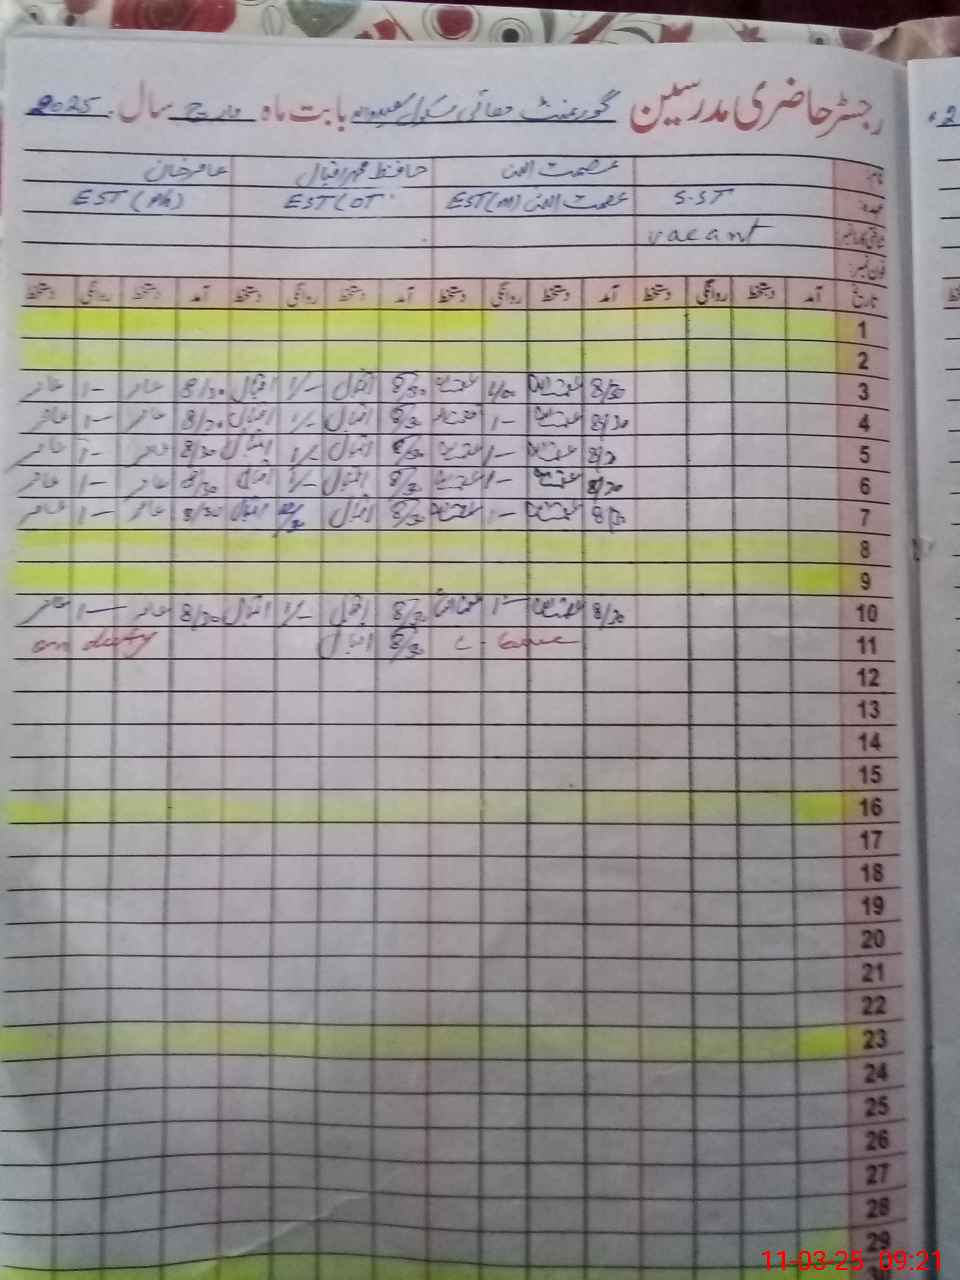 رجسٹر حاضری مدرسین گورنمنٹ ھائی سکول بابت ماہ مارچ سال 2025
نام: عصمت اللہ حافظ محمد اقبال عامر خان
عہدہ: S.ST عصمت اللہ EST(M) EST(OT EST(Ph)
شناختی کارڈ نمبر: vacant
فون نمبر:
تاریخ آمد دستخط روانگی دستخط آمد دستخط روانگی دستخط آمد دستخط روانگی دستخط آمد دستخط روانگی دستخط
1
2
3 8/30 عصمت 1/00 عصمت 8/30 اقبال 1/- اقبال 8/30 عامر 1- عامر
4 8/30 عصمت 1- عصمت 8/30 اقبال 1/- اقبال 8/30 عامر 1- عامر
5 عصمت 1- عصمت 8/30 اقبال 1/- اقبال 8/30 عامر 1- عامر
6 8/30 عصمت 1- عصمت 8/30 اقبال 1/- اقبال 8/30 عامر 1- عامر
7 8/30 عصمت 1- عصمت 8/30 اقبال اقبال 8/30 عامر 1- عامر
8
9
10 8/30 عصمت 1- عصمت 8/30 اقبال 1/- اقبال 8/30 عامر 1- عامر
11 C-Leave 8/30 اقبال on duty
12
13
14
15
16
17
18
19
20
21
22
23
24
25
26
27
28
29
30
11-03-25 09:21